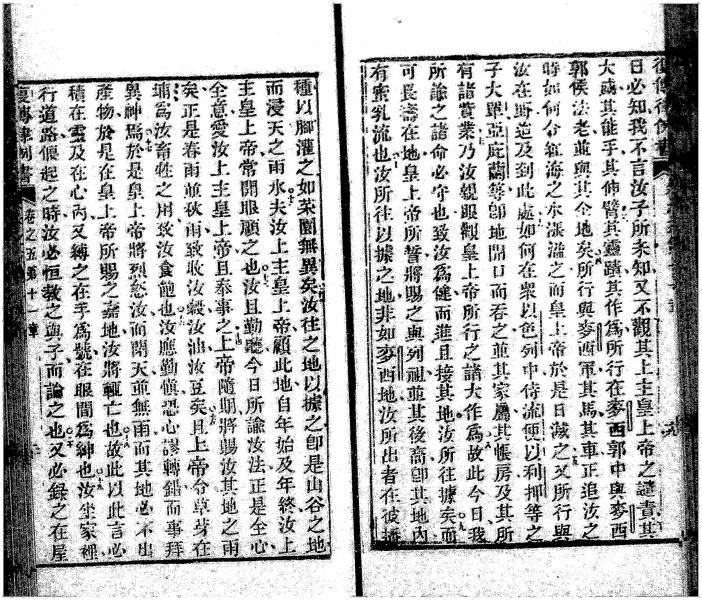 復傳律例書
日必知我不言汝子所未知又不觀其上主皇上帝之譴責其
大威其能手其伸臂其靈蹟其作為所行在麥西郭中與麥西
郭侯法老並與其全地矣所行與麥西軍其馬其車正追汝之
時如何令紅海之水漲溢之而皇上帝於是日滅之又所行與
汝在野迄及到此處如何在衆以色列中侍流便以利押等之
子大單亞庇蘭等卽地開口而吞之並其家屬其帳房及其所
有諸貲業乃汝親眼觀皇上帝所行之諸大作為故此今日我
所諭之諸命必守也致汝為健而進且接其地汝所往據矣而
可長壽在地皇上帝所誓將賜之與列祖並其後裔卽其地內
有蜜乳流也汝所往以據之地非如麥西地汝所出者在彼播
種以腳灌之如菜園無異矣汝往之地以據之卽是山谷之地
而浸天之雨水夫汝上主皇上帝顧此地自年始及年終汝上
主皇上帝常開眼顧之也汝且勤聽今日所諭汝法正是全心
全意愛汝上主皇上帝且奉事之上帝隨期將賜汝其地之雨
矣正是春雨並秋雨致收汝穀汝油汝豆矣且上帝令草芽在
埔為汝畜牲之用致汝食飽也汝應勤慎恐心謬轉錯而事拜
異神焉於是皇上帝將烈怒汝而閉天並無雨而其地必不出
產物於是在皇上帝所賜之嘉地汝將輒亡也故此以此言必
積在靈及在心內又縛之在手為號在眼間為紳也汝坐家裡
行道路偃起之時汝必恒教之與子而論之也又必錄之在屋
復傳律例書 卷之五第十一章